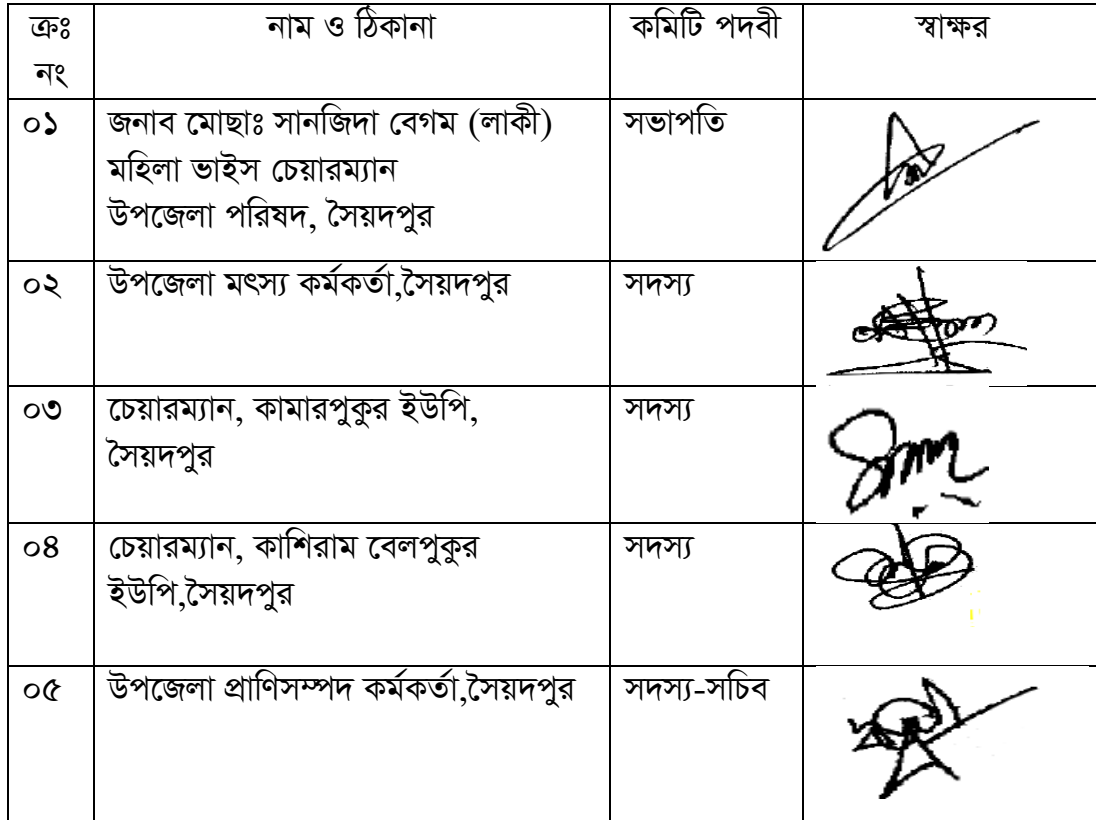 ক্রঃ নং নাম ও ঠিকানা কমিটি পদবী স্বাক্ষর
০১ জনাব মোছাঃ সানজিদা বেগম (লাকী) সভাপতি
মহিলা ভাইস চেয়ারম্যান
উপজেলা পরিষদ, সৈয়দপুর
০২ উপজেলা মৎস্য কর্মকর্তা,সৈয়দপুর সদস্য
০৩ চেয়ারম্যান, কামারপুকুর ইউপি, সদস্য
সৈয়দপুর
০৪ চেয়ারম্যান, কাশিরাম বেলপুকুর সদস্য
ইউপি,সৈয়দপুর
০৫ উপজেলা প্রাণিসম্পদ কর্মকর্তা,সৈয়দপুর সদস্য-সচিব